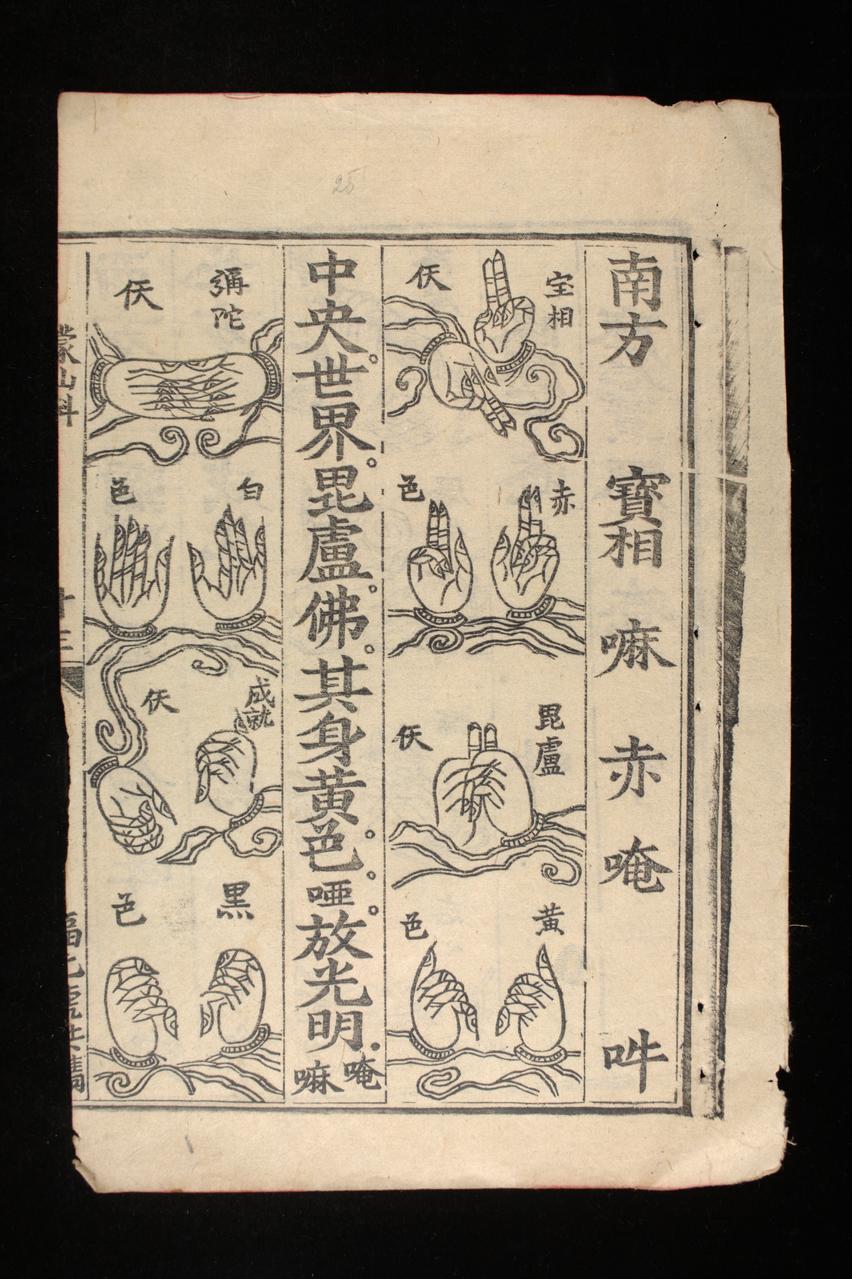 南方 寶相 嘛 赤 唵 吽
宝相 仸
赤色
毘盧 仸
黄色
中央世界毘盧佛其身黄色㗒放光明唵嘛
彌陀 仸
白色
成就 仸
黑色
蒙山科
十三
25